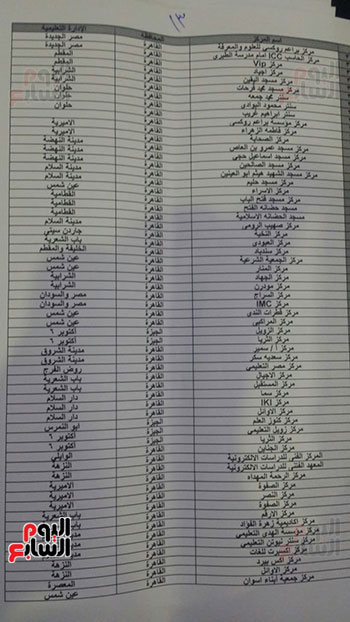 ١٣
اسم المركز المحافظة الإدارة التعليمية
مركز براعم روكسي للعلوم والمعرفة القاهرة مصر الجديدة
مركز الحاسب ICC امام مدرسة الطبرى القاهرة مصر الجديدة
مركز Vip القاهرة المقطم
مركز اجياد القاهرة المقطم
مركز مسجد اليقين القاهرة الشرابية
مركز مسجد محمد فرحات القاهرة حلوان
مركز محمد جمعه القاهرة حلوان
سنتر محمود البوادى القاهرة حلوان
سنتر ابراهيم غريب القاهرة
مركز مؤسسة براعم روكسى القاهرة
مركز فاطمة الزهراء القاهرة الاميرية
مركز الصحابة القاهرة
مركز مسجد عمرو بن العاص القاهرة مدينة النهضة
مركز مسجد اسماعيل حجى القاهرة مدينة النهضة
مركز مسجد الصالحين القاهرة
مركز مسجد الشهيد هيثم ابو العينين القاهرة مدينة السلام
مسجد حليم القاهرة عين شمس
مركز الاسراء القاهرة القطامية
مركز مسجد فتح الباب القاهرة القطامية
مسجد حضانه الفتح القاهرة القطامية
مسجد الحضانه الاسلامية القاهرة
مركز صهيب الرومى القاهرة مدينة السلام
مركز النخبة القاهرة جاردن سيتي
مركز العبودى القاهرة باب الشعرية
مركز سندباد القاهرة الخليفة والمقطم
مركز الجمعية الشرعية القاهرة عين شمس
مركز المنار القاهرة عين شمس
مركز الجهاد القاهرة الشرابية
مركز مودرن القاهرة الشرابية
مركز السراج القاهرة مصر والسودان
مركز IMC القاهرة مصر والسودان
مركز قطرات الندى القاهرة عين شمس
مركز المراكبى القاهرة عين شمس
مركز الزويل الجيزة ٦ أكتوبر
مركز الثريا الجيزة ٦ أكتوبر
مركز أ / سمير القاهرة مدينة الشروق
مركز سعديه سكر القاهرة مدينة الشروق
مركز مصر التعليمى القاهرة روض الفرج
مركز الاجيال القاهرة باب الشعرية
مركز المستقبل القاهرة باب الشعرية
مركز سما القاهرة دار السلام
مركز IKI القاهرة دار السلام
مركز الاوائل القاهرة دار السلام
مركز كنوز العلم الجيزة ابو النمرس
مركز زويل التعليمى الجيزة ٦ أكتوبر
مركز الثريا الجيزة ٦ أكتوبر
مركز الجناين القاهرة الوايلي
المركز الفنى للدراسات الالكترونية القاهرة النزهة
المعهد الفني للدراسات الالكترونية القاهرة النزهة
مركز الرحمة المهداه القاهرة الاميرية
مركز الصفوة القاهرة الاميرية
مركز النصر القاهرة الاميرية
مركز الصفوة القاهرة
مركز الارقم القاهرة
مركز اكاديمية زهرة الفؤاد القاهرة باب الشعرية
مركز مؤسسة الهدى التعليمى القاهرة
مركز سنتر نيوتن التعليمى القاهرة
مركز اسبرنت للغات القاهرة
مركز اكس بيرد القاهرة النزهة
مركز الاوائل القاهرة النزهة
مركز جمعية أبناء اسوان القاهرة المعصرة
عين شمس
اليوم السابع